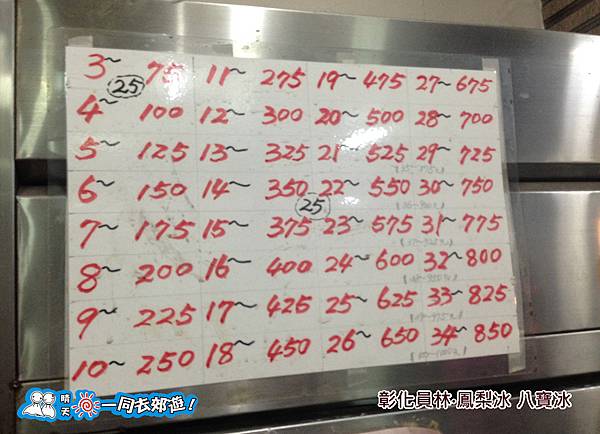 3~ 75 11~ 275 19~ 475 27~ 675
25
4~ 100 12~ 300 20~ 500 28~ 700
5~ 125 13~ 325 21~ 525 29~ 725
6~ 150 14~ 350 22~ 550 30~ 750
25
7~ 175 15~ 375 23~ 575 31~ 775
8~ 200 16~ 400 24~ 600 32~ 800
9~ 225 17~ 425 25~ 625 33~ 825
10~ 250 18~ 450 26~ 650 34~ 850
晴天 一同去郊遊!
彰化員林.鳳梨冰 八寶冰